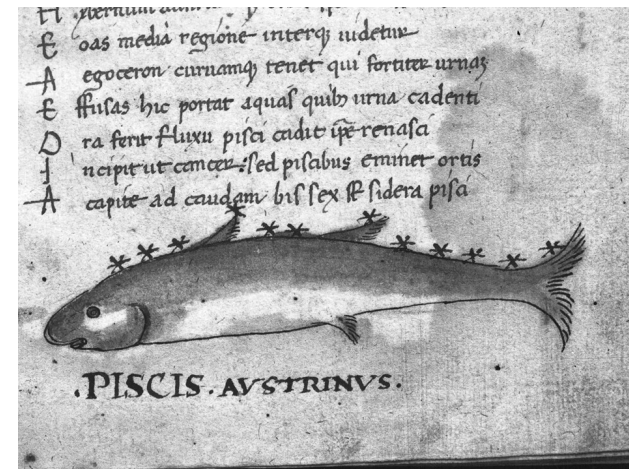 E oas mediā regione interq; uidetur
A egoceron curuamq; tenet qui fortiter urnaʒ
E ffusas hic portat aquas quib; urna cadenti
O ra ferit fluxu pisci cadit ip̄e renasci
I ncipit ut cancer: sed piscibus eminet ortis
A capite ad caudam bis sex st̄ sidera pisci
.PISCIS. AVSTRINVS.